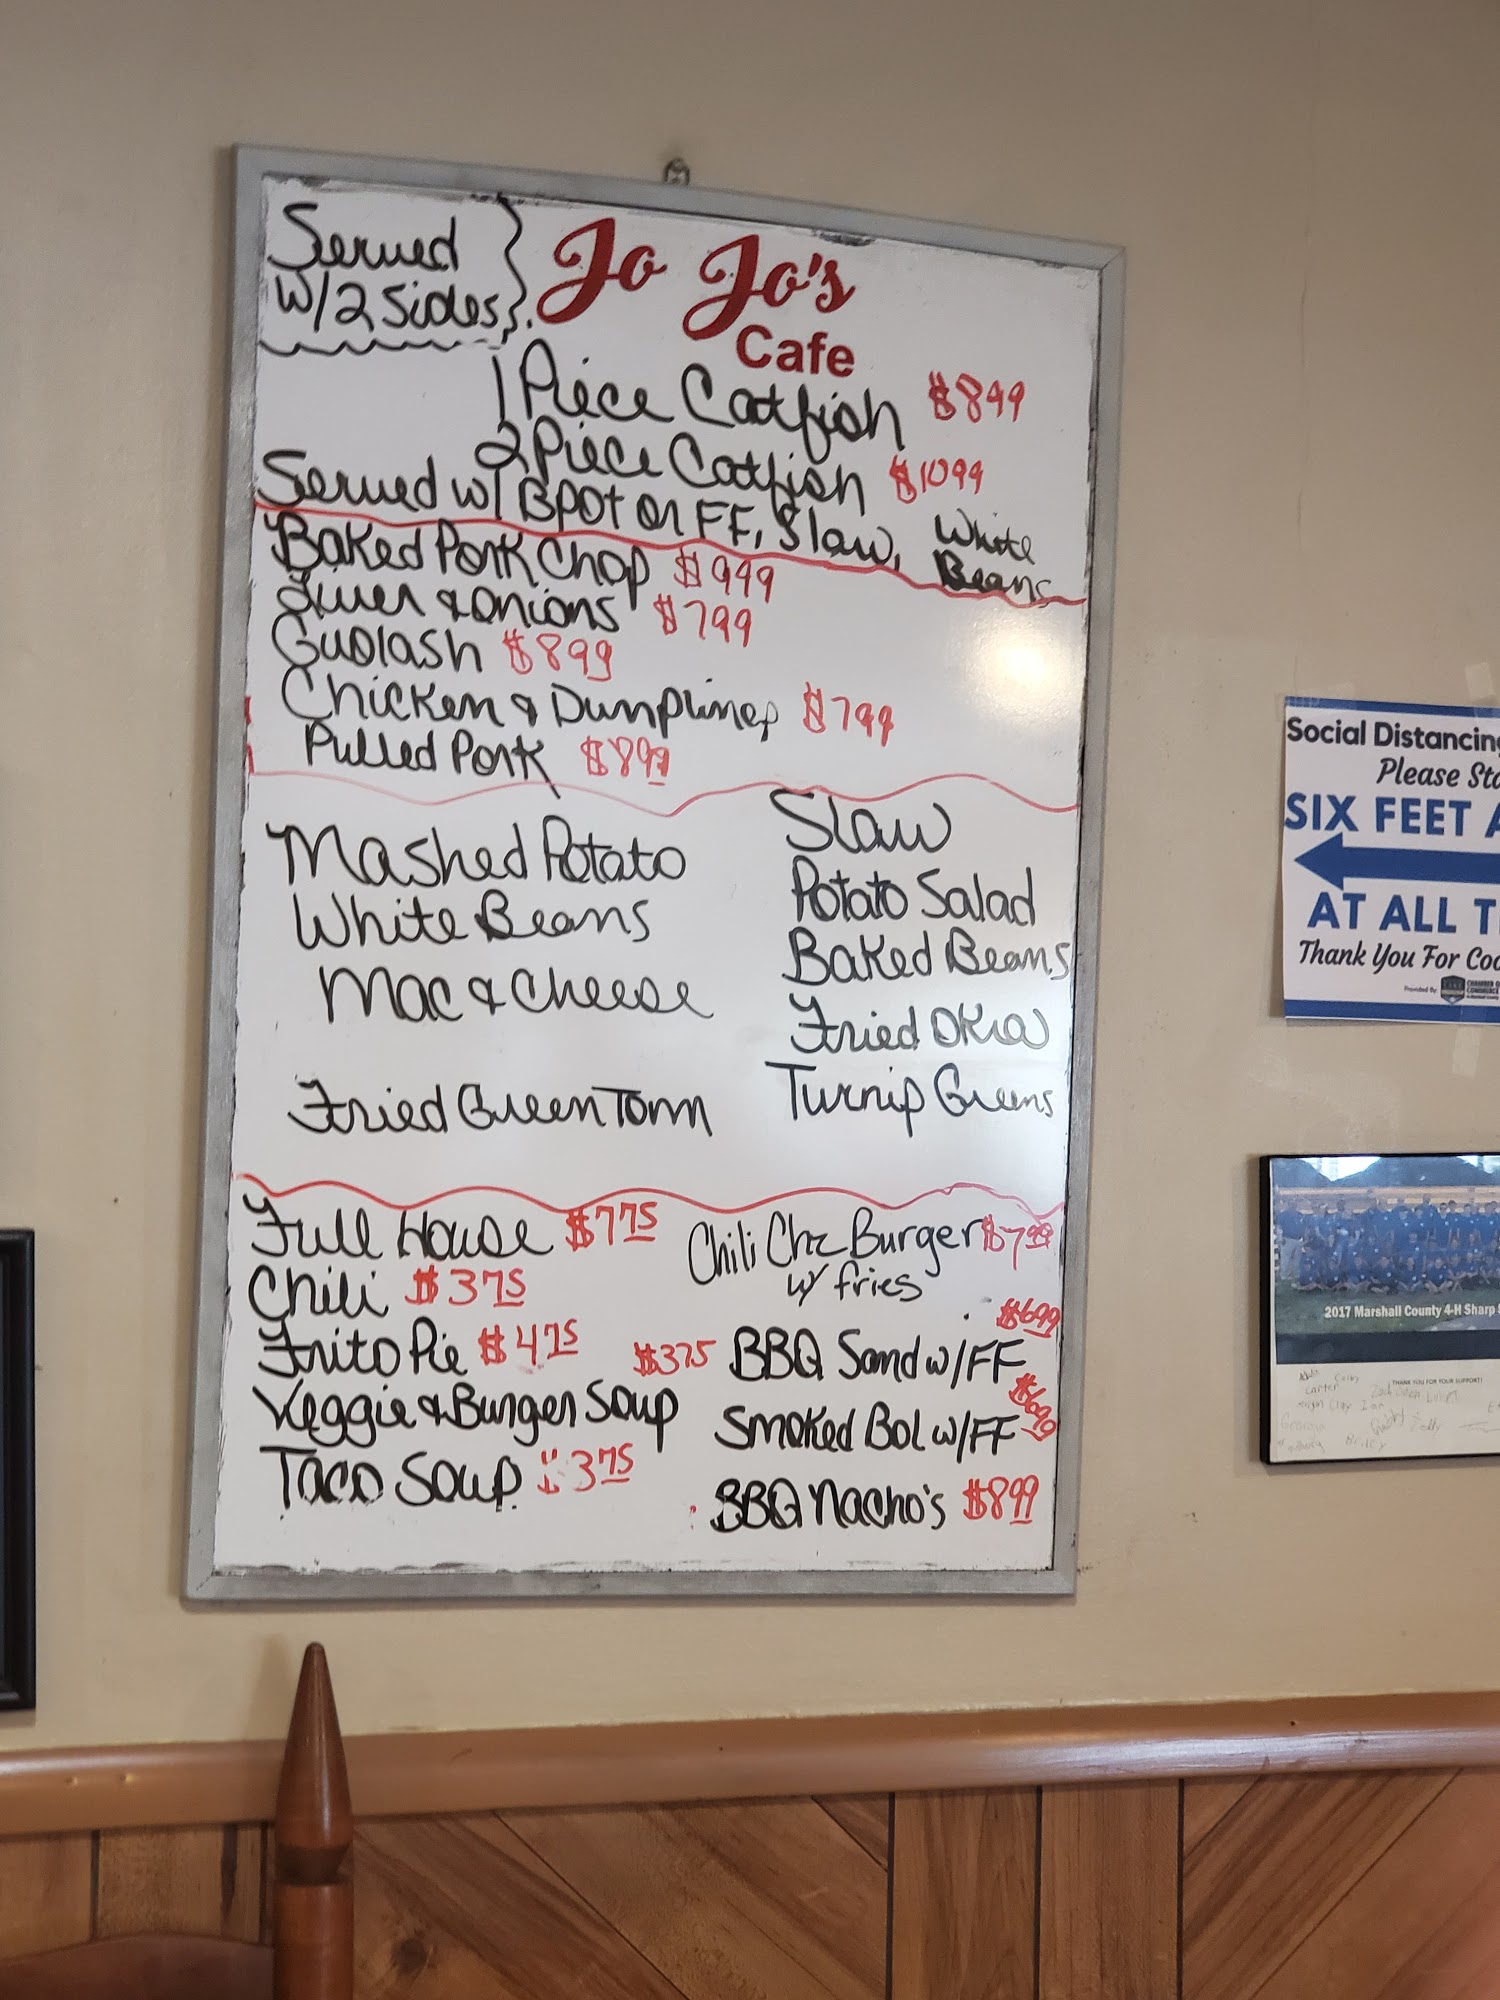 Served
W/2 Sides
Jo Jo's
Cafe
1 Piece Catfish $899
2 Piece Catfish $1099
Served w/ BPot or FF, Slaw, White
Beans
Baked Pork Chop $999
Liver & Onions $799
Guolash $899
Chicken & Dumplings $799
Pulled Pork $899
Mashed Potato
White Beans
Mac & Cheese
Fried Green Tom
Slaw
Potato Salad
Baked Beans
Fried Okra
Turnip Greens
Full House $775
Chili $375
Frito Pie $475
Veggie & Burger Soup $375
Taco Soup $375
Chili Chz Burger $799
w/ fries
BBQ Sand w/FF $699
Smoked Bol w/FF $699
BBQ Nacho's $899
Social Distancing
Please
SIX FEET
AT ALL
Thank You For
Provided By
2017 Marshall County 4-H Sharp
THANK YOU FOR YOUR SUPPORT!